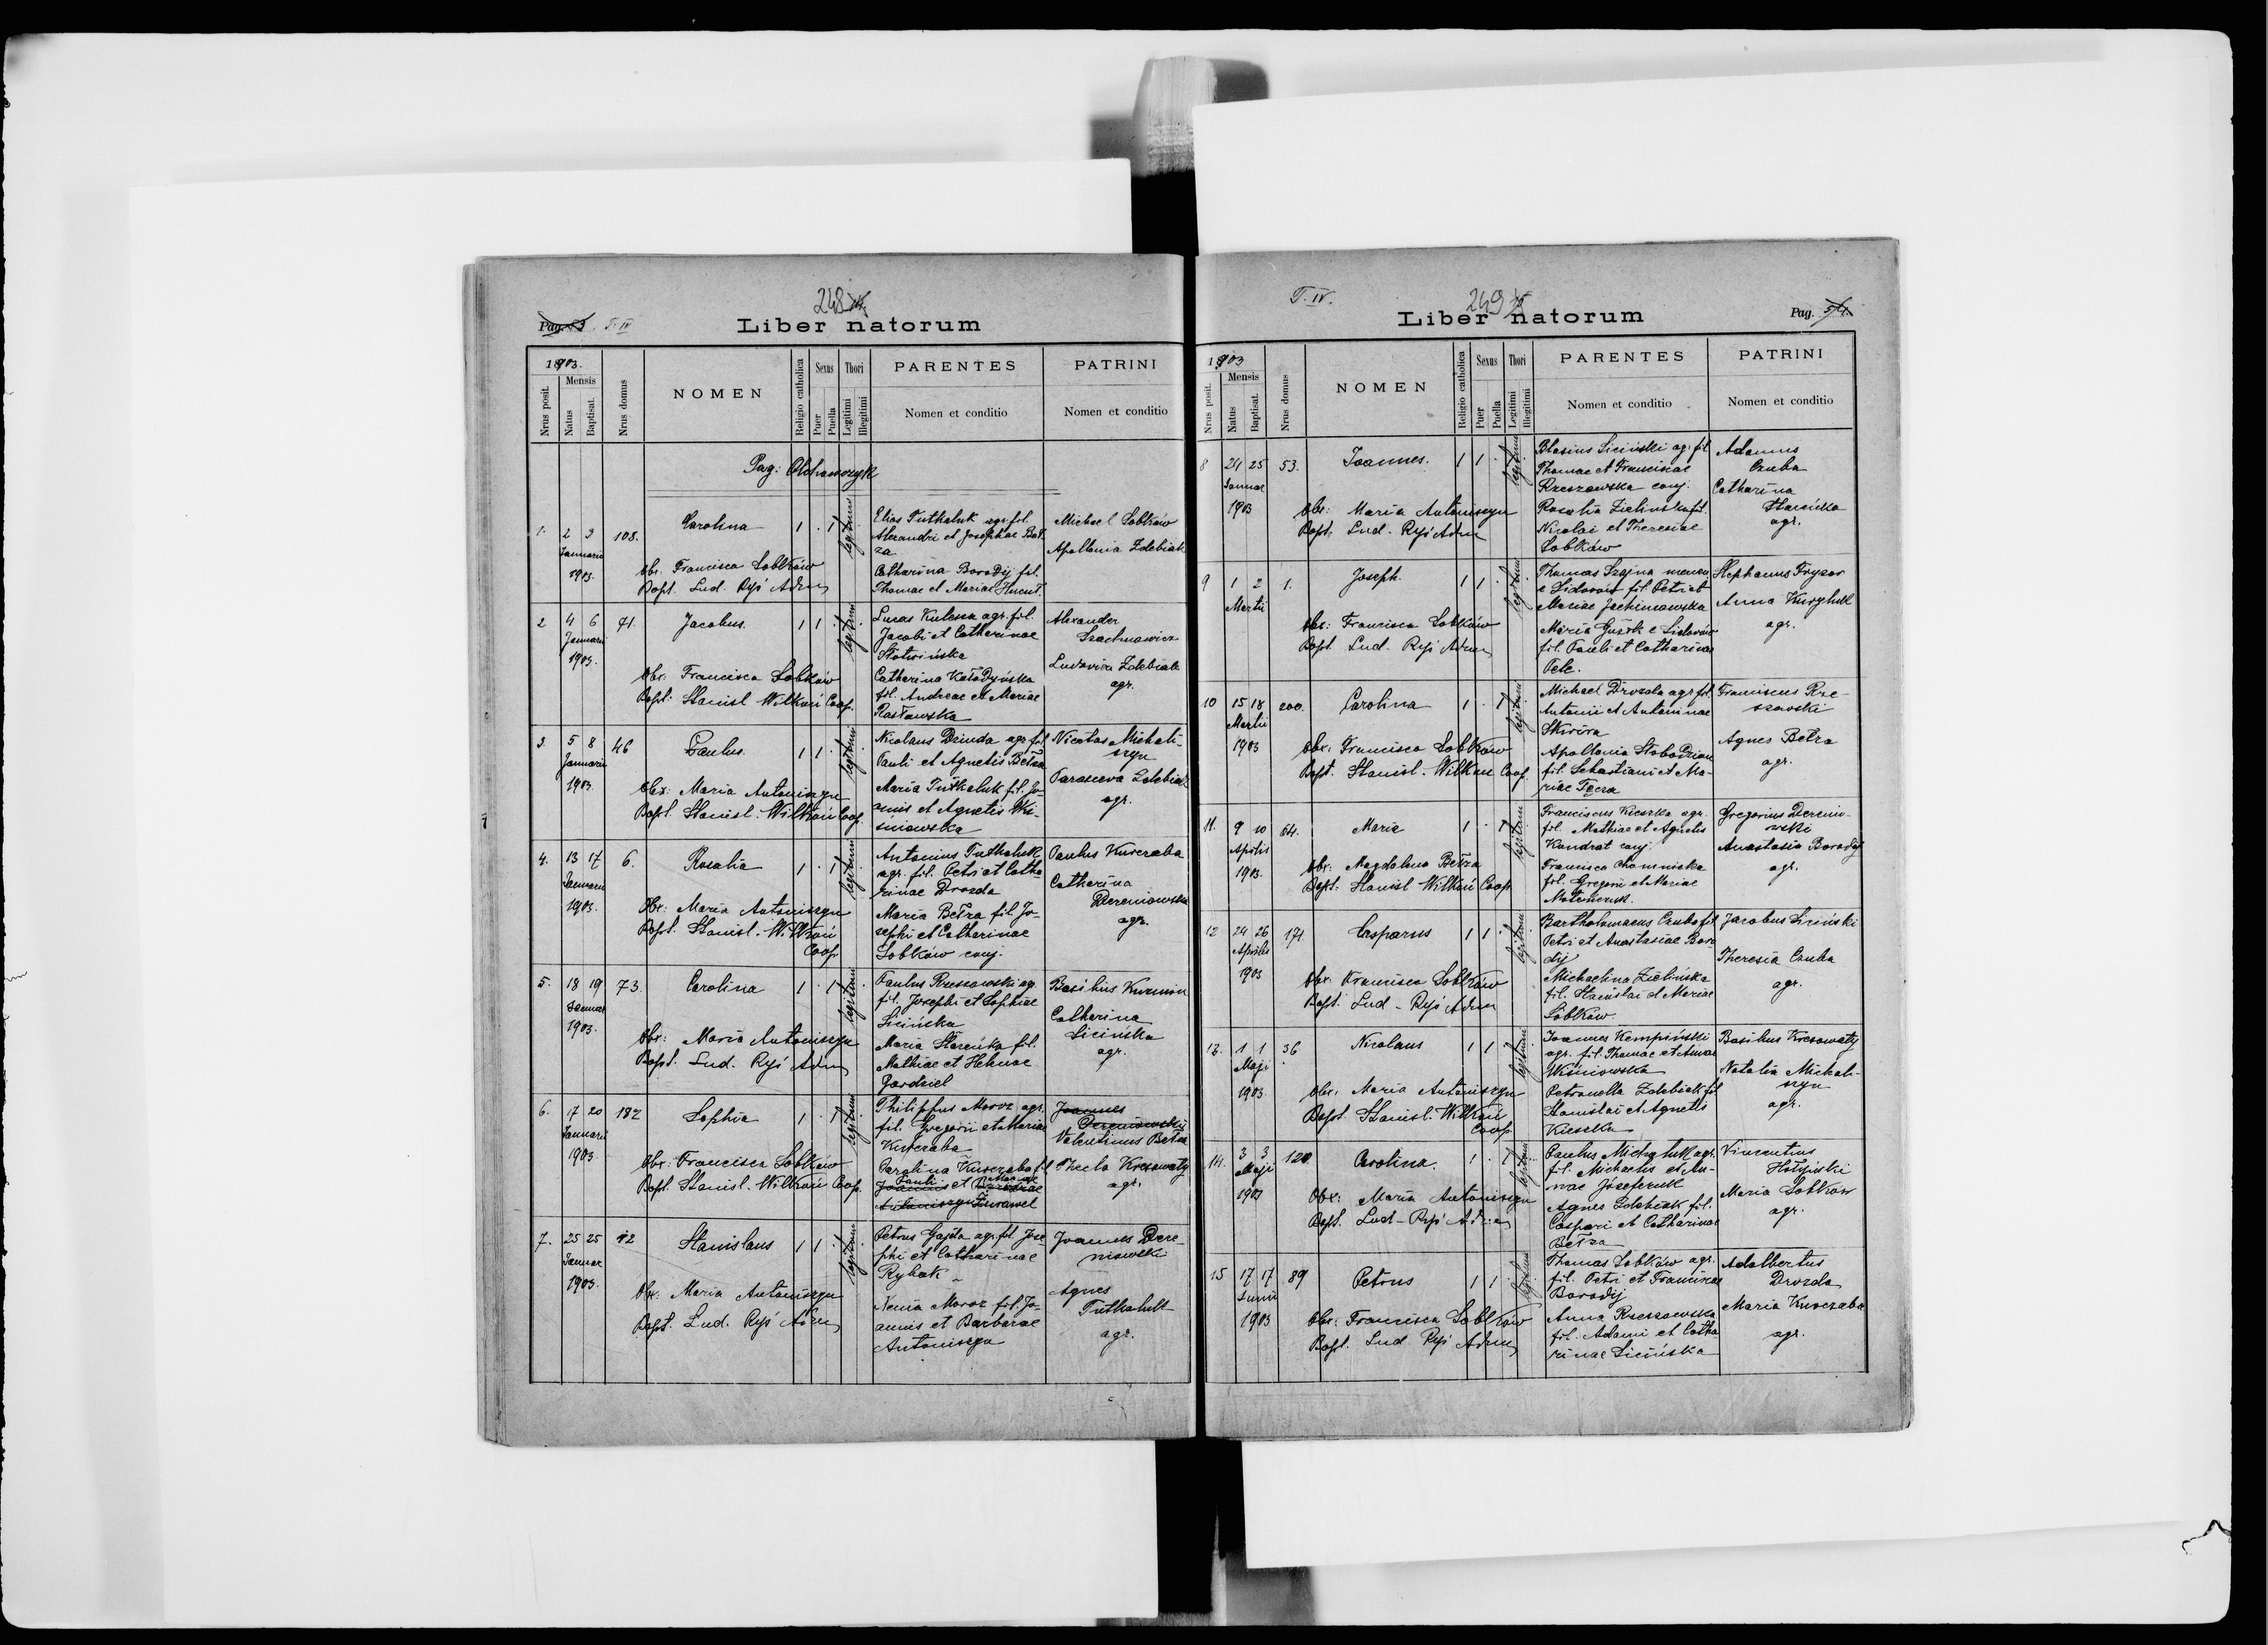 248
Pag. 53 T. IV
Liber natorum
1903.
Nrus posit.
Mensis
Natus
Baptisat.
Nrus domus
NOMEN
Religio catholica
Sexus
Puer
Puella
Thori
Legitimi
Illegitimi
PARENTES
Nomen et conditio
PATRINI
Nomen et conditio
Pag: Olchowczyk
1. 2 3 108.
Januarii
1903.
Carolina 1 . 1 legitimi
Obx. Francisca Sobków
Bapt. Lud. Ryś Adm
Elias Tutkaluk agr. fil.
Alexandri et Josephae Beł-
za
Catharina Borodij fil.
Thomae et Mariae
Michael Sobków
Apollonia Zdebiak
2 4 6 71.
Januarii
1903.
Jacobus. 1 1 . legitimi
Obx. Francisca Sobków
Bapt. Stanisl Wilkoń Coop.
Lucas Kulesza agr. fil.
Jacobi et Catharinae
Słotwińska
Catharina Kołodyńska
fil. Andreae et Mariae
Rasławska
Alexander
Szachnowicz
Ludovica Zdebiak
agr.
3. 5 8 46
Januarii
1903.
Paulus. 1 1 . legitimi
Obx: Maria Antoniszyn
Bapt. Stanisl. Wilkoń Coop.
Nicolaus Dziuda agr. fil
Pauli et Agnetis Bełza
Maria Tutkaluk fil. Jo-
annis et Agnetis Wi-
śniowska
Nicolas Michali-
szyn
Parasceva Zdebiak
agr.
4. 13 17 6.
Januarii
1903.
Rosalia 1 . 1 legitimi
Obx: Maria Antoniszyn
Bapt. Stanisl. Wilkoń
Coop
Antonius Tutkaluk
agr. fil. Petri et Catha-
rinae Drozda
Maria Bełza fil. Jo-
sephi et Catharinae
Sobków conj.
Paulus Kurczaba
Catharina
Dereniowska
agr.
5. 18 19 73.
Januar
1903.
Carolina 1 . 1 legitimi
Obx: Maria Antoniszyn
Bapt. Lud. Ryś Adm
Paulus Rzeszowski ag.
fil. Josephi et Sophiae
Siecińska
Maria Stareńka fil.
Mathiae et Helenae
Gardziel
Basilius Kuzmin
Catharina
Sicińska
agr.
6. 17 20 182
Januarii
1903.
Sophia 1 . 1 legitimi
Obx: Francisca Sobków
Bapt. Stanisl. Wilkoń Coop.
Philippus Moroz agr.
fil. Gregorii et Mariae
Kurczaba
Carolina Kurczaba fil
Joannis Pauli et Barbarae Mariae
Antoniszyn Żurawel
Joannes
Dereniowski
Valentinus Bełza
Thecla Kresowaty
agr.
7. 25 25 12
Januar
1903.
Stanislaus 1 1 . legitimi
Obx: Maria Antoniszyn
Bapt. Lud. Ryś Adm
Petrus Gajda agr. fil. Jose-
phi et Catharinae
Rybak
Xenia Moroz fil. Jo-
annis et Barbarae
Antoniszyn
Joannes Dere-
niowski
Agnes
Tutkaluk
agr.
T. IV.
249
Liber natorum
Pag. 54.
1903
Nrus posit.
Mensis
Natus
Baptisat.
Nrus domus
NOMEN
Religio catholica
Sexus
Puer
Puella
Thori
Legitimi
Illegitimi
PARENTES
Nomen et conditio
PATRINI
Nomen et conditio
8 24 25 53.
Januar
1903
Joannes. 1 1 . legitimi
Obx: Maria Antoniszyn
Bapt. Lud. Ryś Adm
Blasius Siciński ag. fil
Thomae et Franciscae
Rzeszowska conj.
Rosalia Zielińska fil.
Nicolai et Theresiae
Sobków
Adamus
Czuba
Catharina
Stareńka
agr.
9 1 2 1.
Martii
Joseph. 1 1 . legitimi
Obx: Francisca Sobków
Bapt Lud. Ryś Adm
Thomas Szajna
e Sidorów fil. Petri et
Mariae Jachimowska
Maria Guśik e Sidorów
fil. Pauli et Catharinae
Pele.
Stephanus Fryzor
Anna Kuryluk
agr.
10 15 18 200.
Martii
1903
Carolina 1 . 1 legitimi
Obx: Francisca Sobków
Bapt. Stanisl. Wilkoń Coop.
Michael Drozda agr fil.
Antonii et Antoninae
Skwira
Apollonia Słobodzian
fil. Sebastiani et Ma-
riae Tęcza
Franciscus Rze-
szowski
Agnes Bełza
agr.
11. 9 10 64.
Aprilis
1903.
Maria 1 . 1 legitimi
Obx. Magdalena Bełza
Bapt. Stanisl Wilkoń Coop
Franciscus Kieszka agr.
fil. Mathiae et Agnetis
Kondrat conj.
Francisca Chomnicka
fil. Gregorii et Mariae
Gregorius Derenio-
wski
Anastasia Borodij
agr.
12 24 26 171.
Aprilis
1903
Casparus 1 1 . legitimi
Obx. Francisca Sobków
Bapt. Lud - Ryś Adm
Bartholomaeus Czuba fil
Petri et Anastasiae Boro-
dij
Michaelina Zielińska
fil. Stanislai et Mariae
Sobków
Jacobus Siciński
Theresia Czuba
agr.
13. 1 1 36
Maji
1903.
Nicolaus 1 1 . legitimi
Obx. Maria Antoniszyn
Bapt. Stanisl. Wilkoń
Coop
Joannes Kempiński
agr. fil. Thomae et Annae
Wiśniowska
Petronella Zdebiak fil.
Stanislai et Agnetis
Kieszka
Basilius Kresowaty
Natalia Michali-
szyn
agr.
14. 3 3 120.
Maji
1903
Carolina. 1 . 1 legitimi
Obx: Maria Antoniszyn
Bapt. Lud - Ryś Adm
Paulus Michaluk agr.
fil. Michaelis et An-
nae Józefczuk
Agnes Zdebiak fil.
Caspari et Catharinae
Bełza
Vincentius
Hołyński
Maria Sobków
agr.
15 17 17 89
Junii
1903
Petrus 1 1 . legitimi
Obx: Francisca Sobków
Bapt. Lud Ryś Adm
Thomas Sobków agr.
fil. Petri et Franciscae
Borodij
Anna Rzeszowska
fil. Adami et Catha-
rinae Sicińska
Adalbertus
Drozda
Maria Kurczaba
agr.